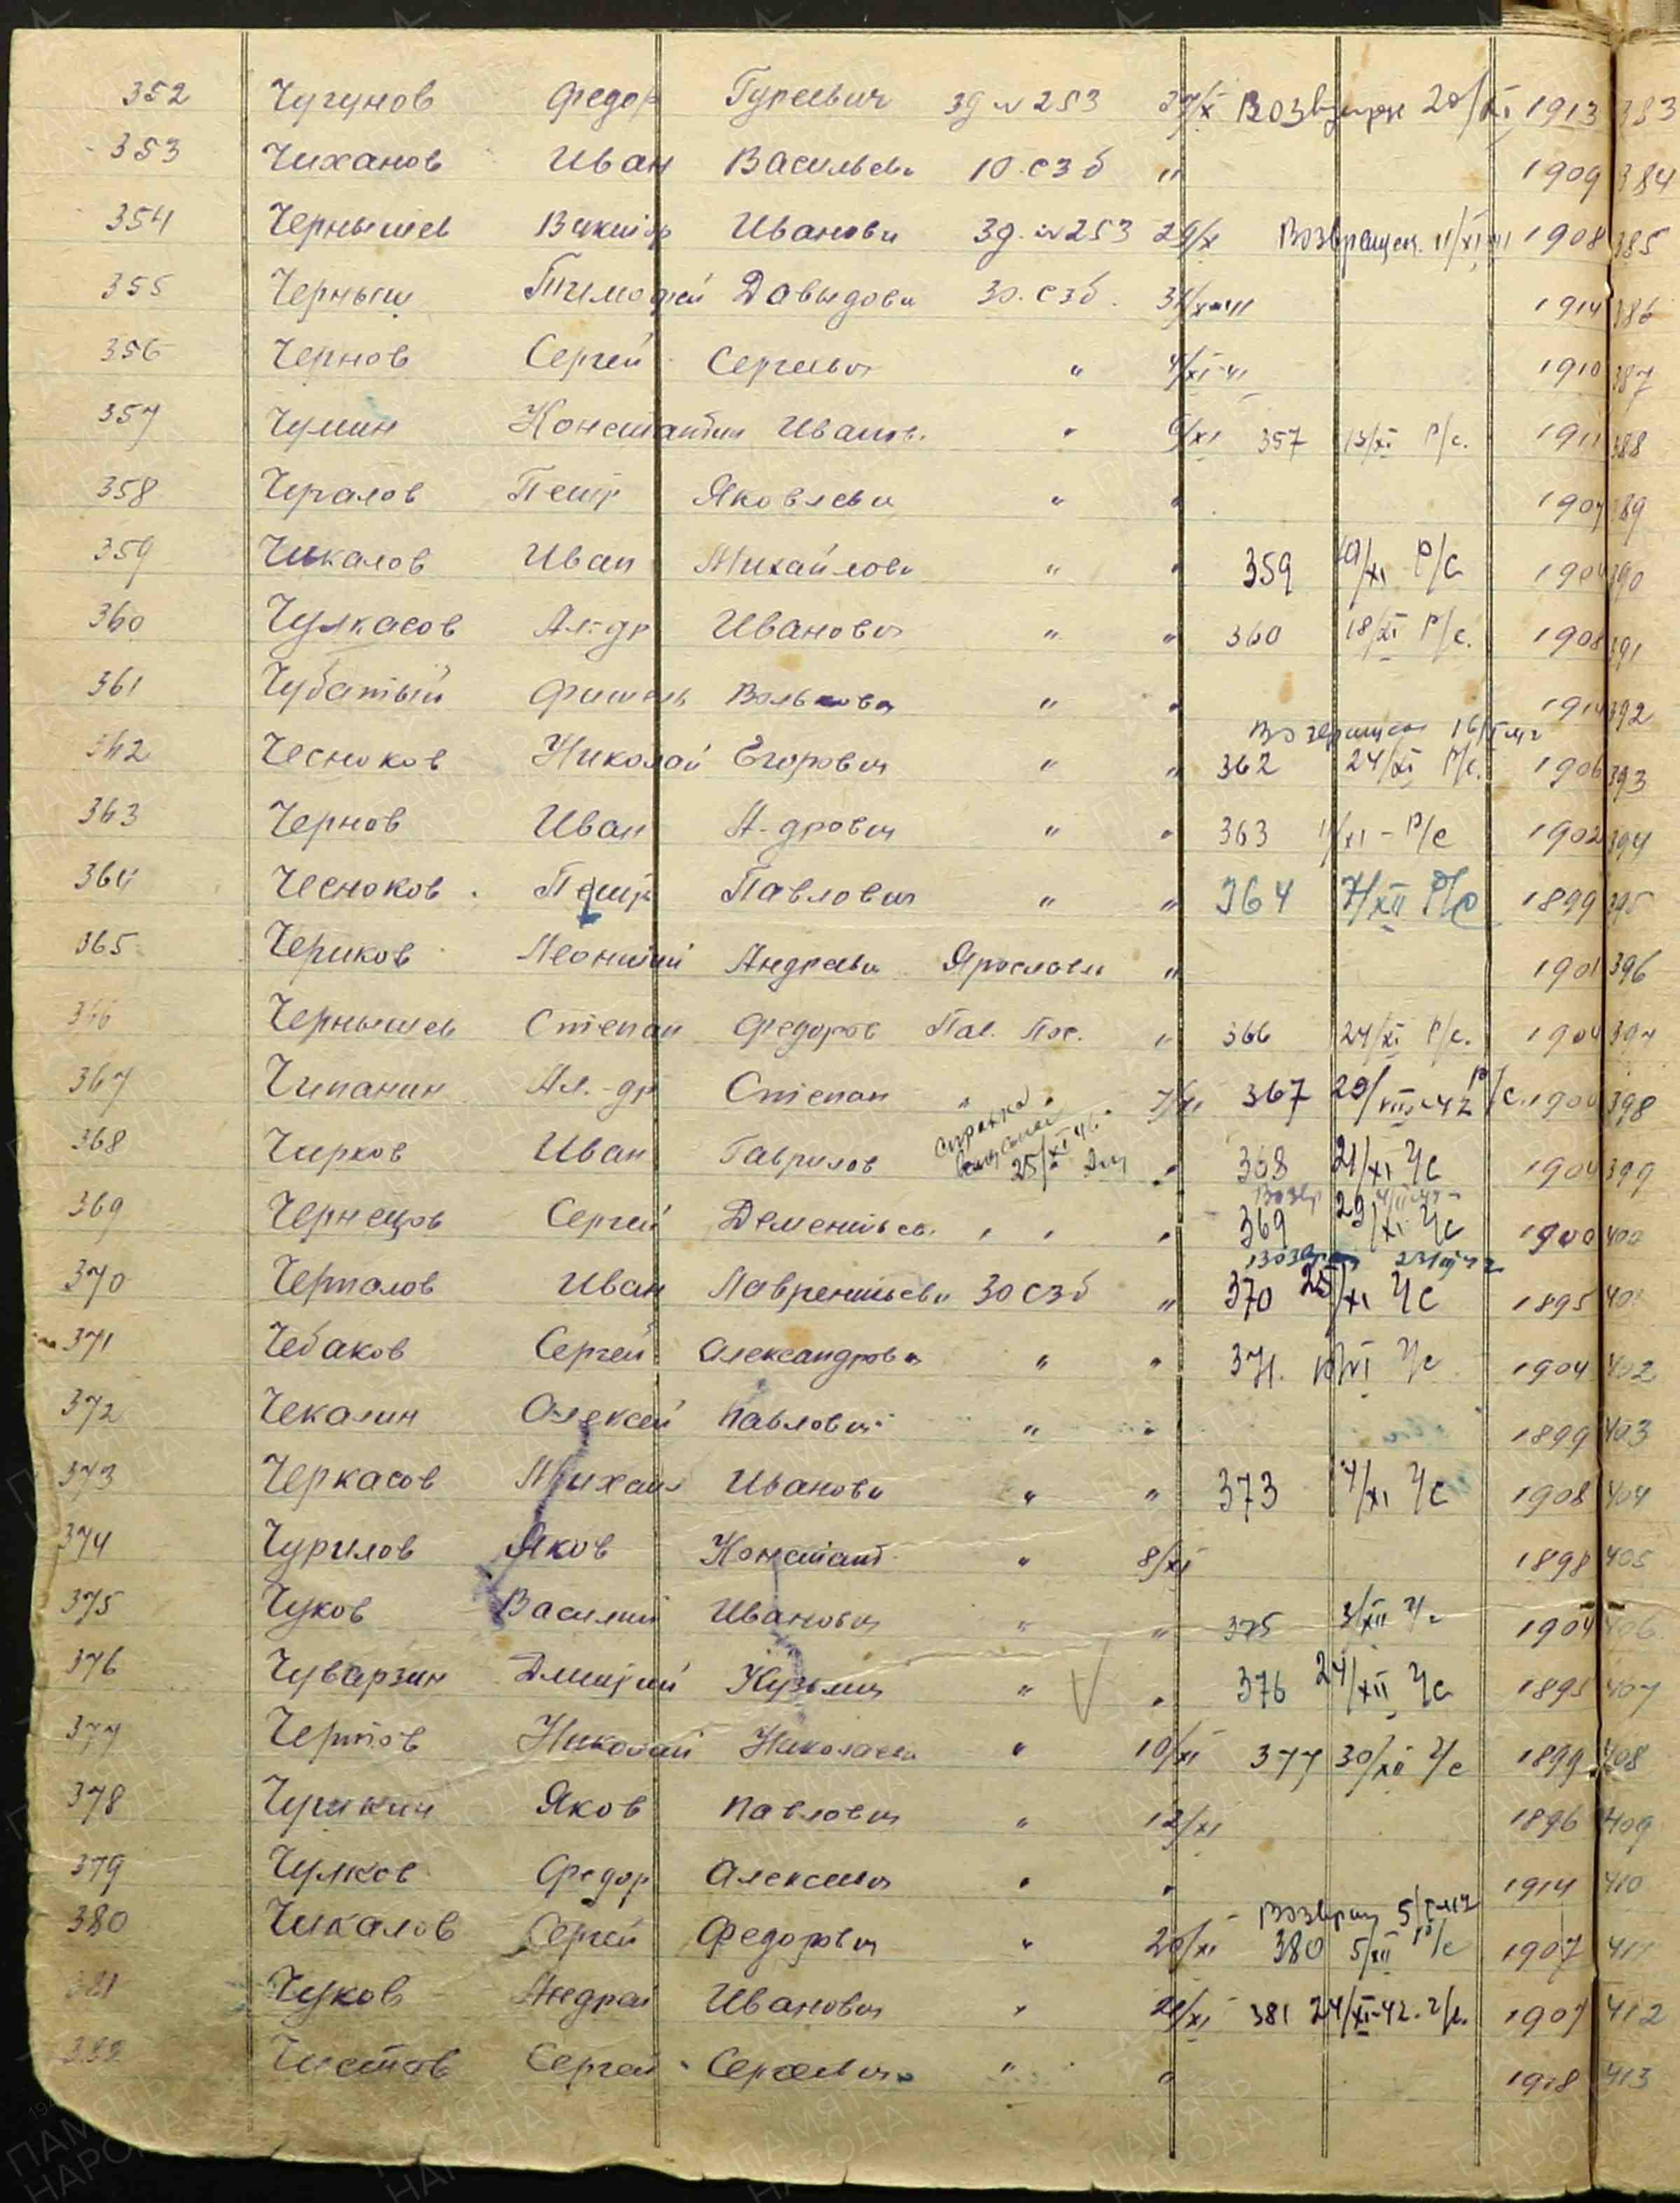 352 Чугунов Федор Гуреевич Зд № 253 29/X Возвращ 20/XI 1913 383
353 Чиханов Иван Васильеви 10.сзб " 1909 384
354 Чернышев Виктор Иванови Зд. № 253 29/X Возвращен. 11/XI 41 1908 385
355 Черныш Тимофей Давыдови 30.сзб. 31/X-41 1914 386
356 Чернов Сергей Сергеевич " 4/XI-41 1910 387
357 Чумин Константин Иванов. " 6/XI 357 13/XI Р/с. 1911 388
358 Петр Яковлеви " " 389
359 Чикалов Иван Михайлови " " 359 19/XI Р/с 1904 390
360 Чулкасов Ал-др Иванович " " 360 18/XI Р/с. 1908 391
361 Чубатый Фишель Вольков " " 1914 392
Возвращен 16/I 42
362 Чесноков Николай Егорович " " 362 24/XI Р/с. 1906 393
363 Чернов Иван А-дрович " " 363 11/XI - Р/с 1902 394
364 Чесноков Петр Павлович " " 364 7/XII Р/с 1899 395
365 Чериков Леонтий Андрееви Ярославл " 1901 396
366 Чернышев Степан Федоров Пав. Пос. " 366 24/XI Р/с. 1904 397
367 Чипанин Ал.-др Степан " " 7/XI 367 29/VIII-42 Р/с. 1900 398
справка
25/XI 46.
368 Чирков Иван Гаврилов " 368 21/XI Ч/с 1904 399
Возвр
369 Чернецов Сергей Дементьев. " " " 369 29/XI Ч/с 1900 400
370 Черпалов Иван Лаврентьеви 30 сзб " 370 25/XI Ч/с 1895 401
371 Чебаков Сергей Александрови " " 371. 10/XI Ч/с 1904 402
372 Чекалин Алексей Павлович " " 1899 403
373 Черкасов Михаил Иванови " " 373 14/XI Ч/с 1908 404
374 Чурилов Яков Констант. " 8/XI 1898 405
375 Чуков Василий Иванович " " 375 3/XII Ч/с 1904 406
376 Чуварзин Дмитрий Кузьмич " " 376 24/XII Ч/с 1895 407
377 Чертов Николай Николаеви " 10/XI 377 30/XII Ч/с 1899 408
378 Яков Павлович " 12/XI 1896 409
379 Чулков Федор Алексеевич " " 1914 410
Возвращ 5/I 42
380 Чикалов Сергей Федорович " 20/XI 380 5/XII Р/с 1907 411
381 Чуков Андрей Иванович " 21/XI 381 24/XI-42. Ч/с. 1907 412
382 Чистов Сергей Сергеевич " " 1918 413
ПАМЯТЬ НАРОДА